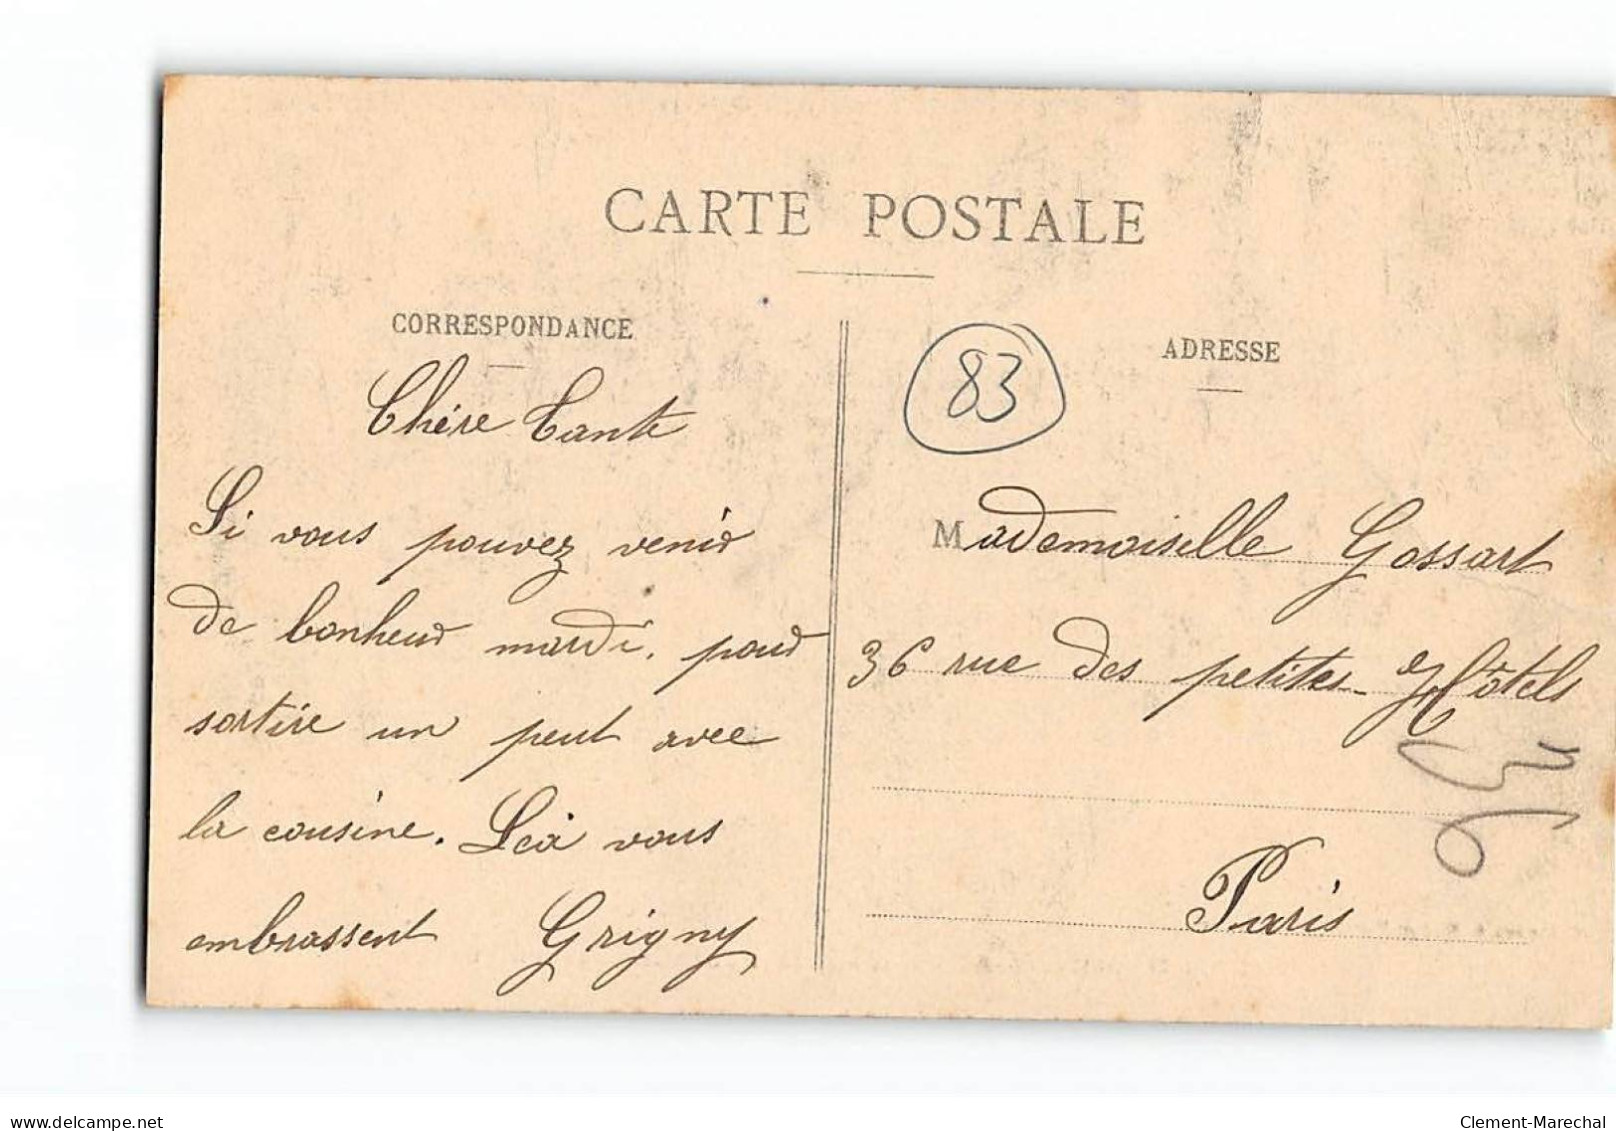 CARTE POSTALE
CORRESPONDANCE
Chére Tante
Si vous pouvez venir
de bonheur mardi. pour
sortire un peut avec
la cousine. Léa vous
embrassent Grigny
83
ADRESSE
Mademoiselle Gossart
36 rue des petites-Hôtels
Paris
delcampe.net
Clement-Marechal